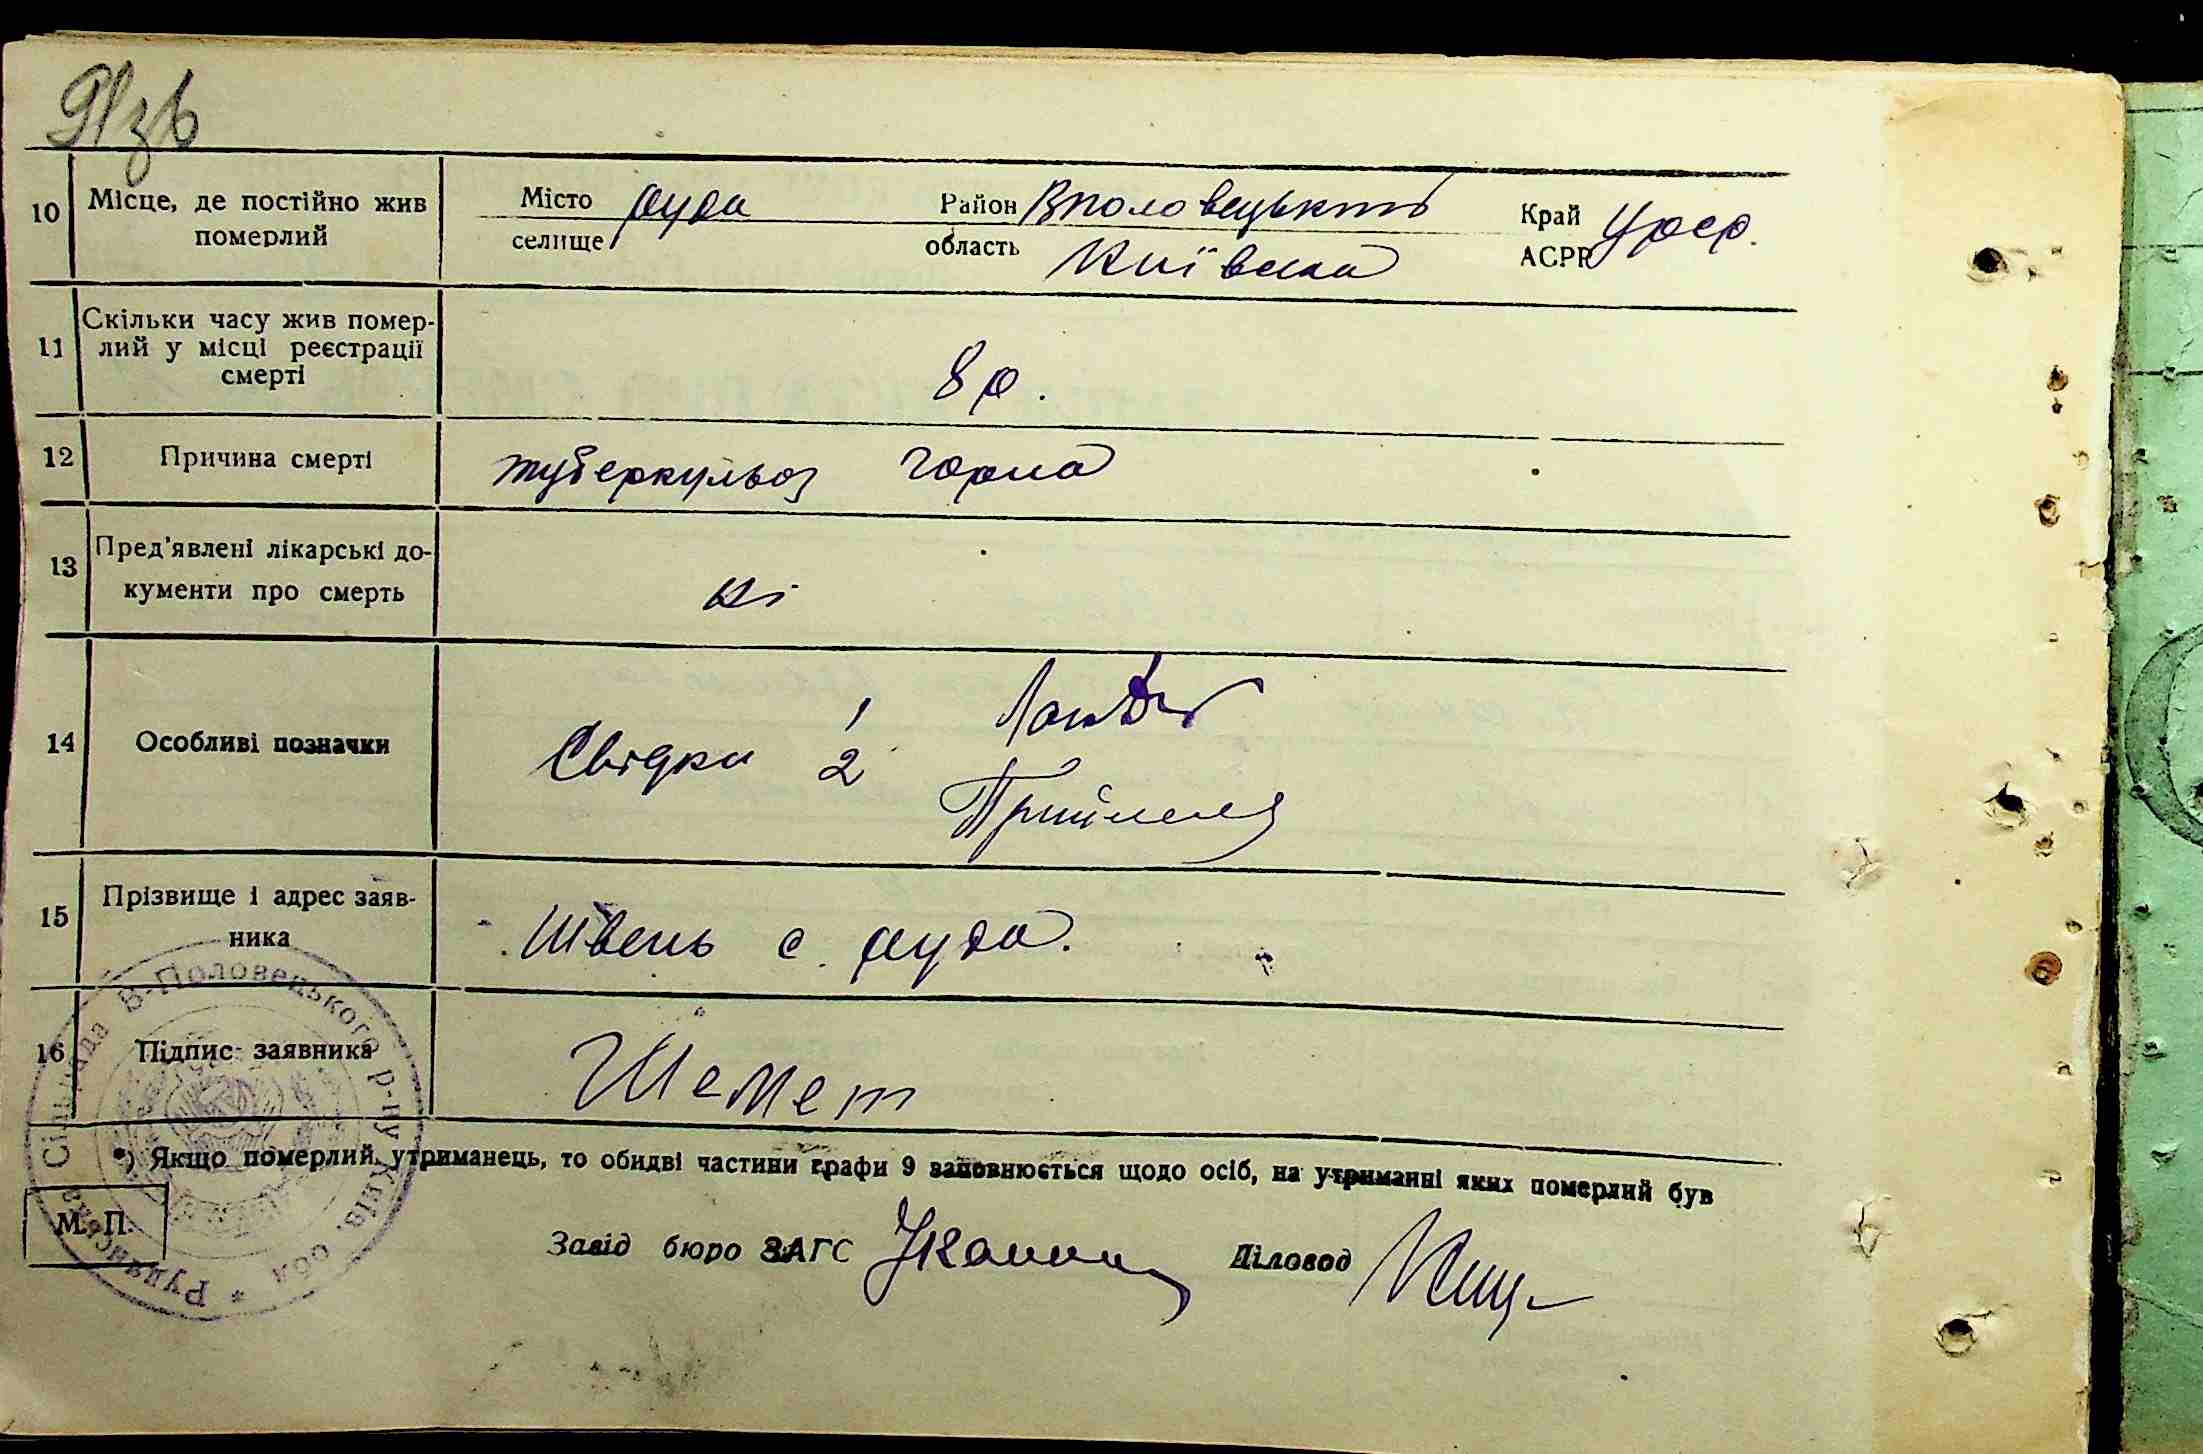 91зв
10 Місце, де постійно жив померлий
Місто селище руда Район Вполовецький область Київська Край АСРР Урср.
11 Скільки часу жив помер-
лий у місці реєстрації
смерті
8 р.
12 Причина смерті туберкульоз горла
13 Пред'явлені лікарські до-
кументи про смерть
ні
14 Особливі позначки
Свідки 1
2
15 Прізвище і адрес заяв-
ника
Швець с. руда.
16 Підпис заявника Шемет
*) Якщо померлий утриманець, то обидві частини графи 9 заповнюється щодо осіб, на утриманні яких померлий був
М. П.
Завід бюро ЗАГС Діловод
Руданська Сільрада В-Половецького р-ну Київ. обл *